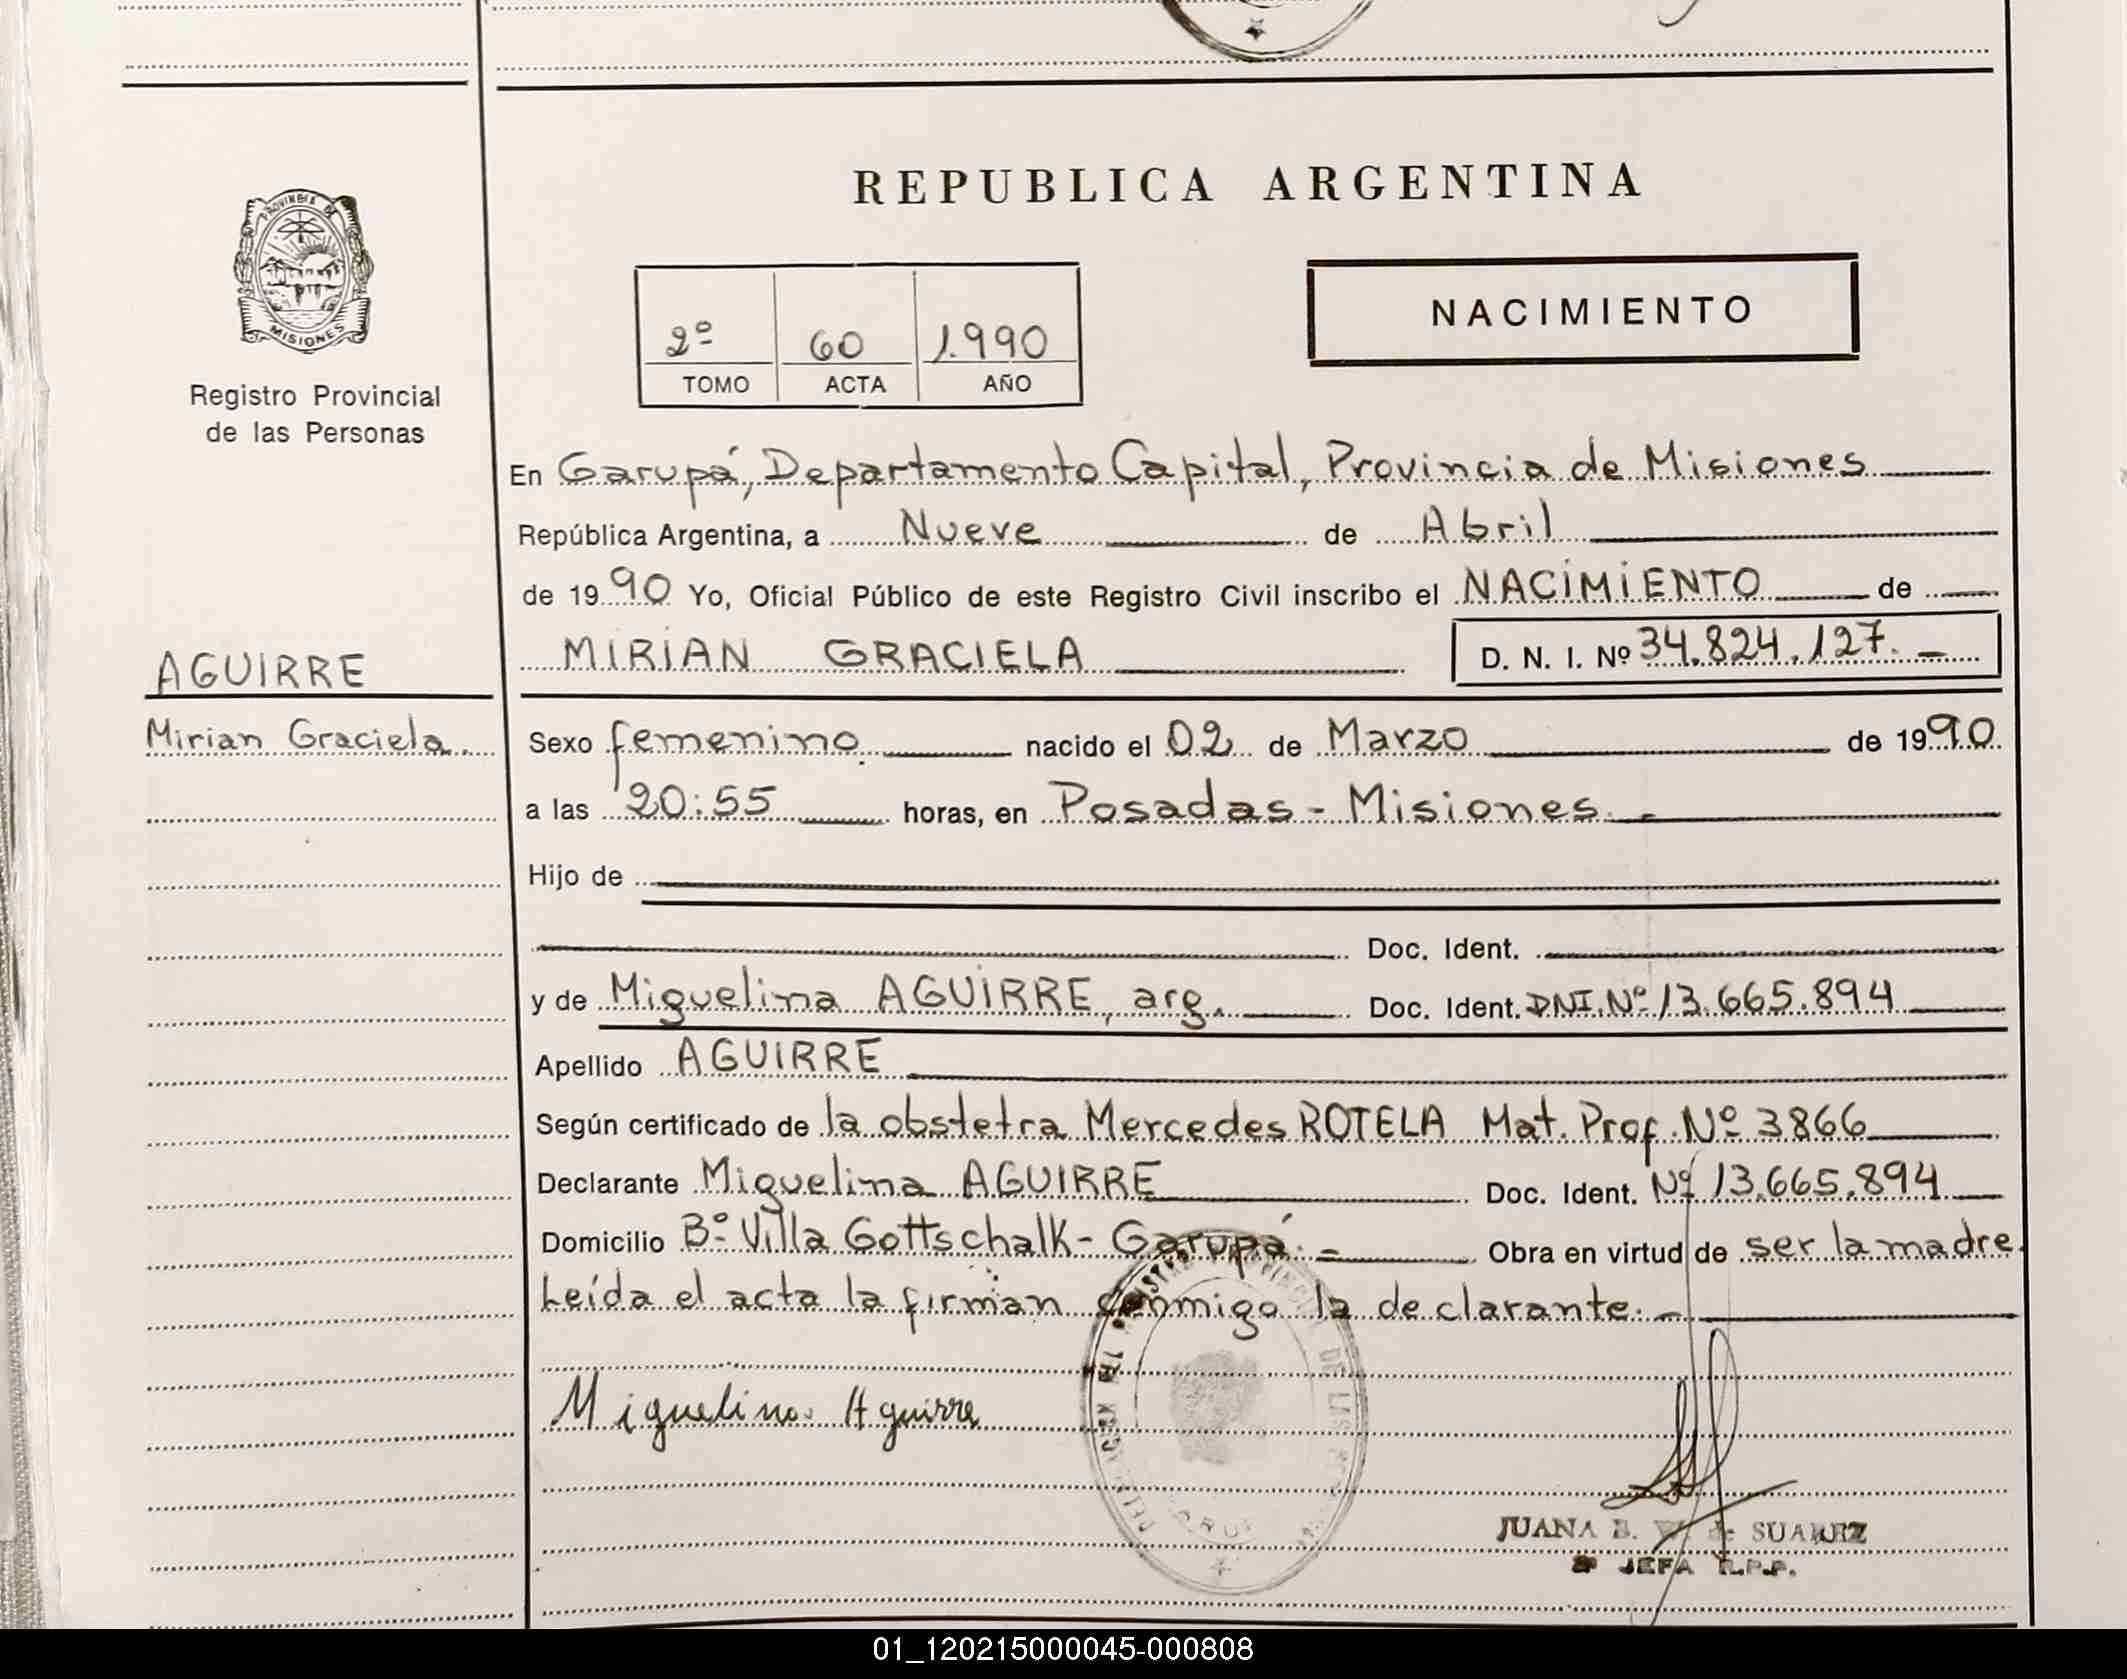 PROVINCIA DE
MISIONES
Registro Provincial
de las Personas
AGUIRRE
Mirian Graciela.
REPUBLICA ARGENTINA
2º 60 1.990
TOMO ACTA AÑO
NACIMIENTO
En Garupá, Departamento Capital, Provincia de Misiones
República Argentina, a Nueve de Abril
de 1990 Yo, Oficial Público de este Registro Civil inscribo el NACIMIENTO de
MIRIAN GRACIELA D. N. I. Nº 34.824.127.-
Sexo femenino. nacido el 02 de Marzo de 1990.
a las 20:55 horas, en Posadas - Misiones.-
Hijo de
Doc. Ident.
y de Miguelina AGUIRRE, arg. Doc. Ident. DNI.Nº 13.665.894
Apellido AGUIRRE
Según certificado de la obstetra Mercedes ROTELA Mat. Prof. Nº 3866
Declarante Miguelina AGUIRRE Doc. Ident. Nº 13.665.894
Domicilio Bº Villa Gottschalk - Garupá.- Obra en virtud de ser la madre.
Leída el acta la firman conmigo la declarante.-
Miguelina Aguirre
JUANA B. de SUAREZ
JEFA R.P.P.
01_120215000045-000808